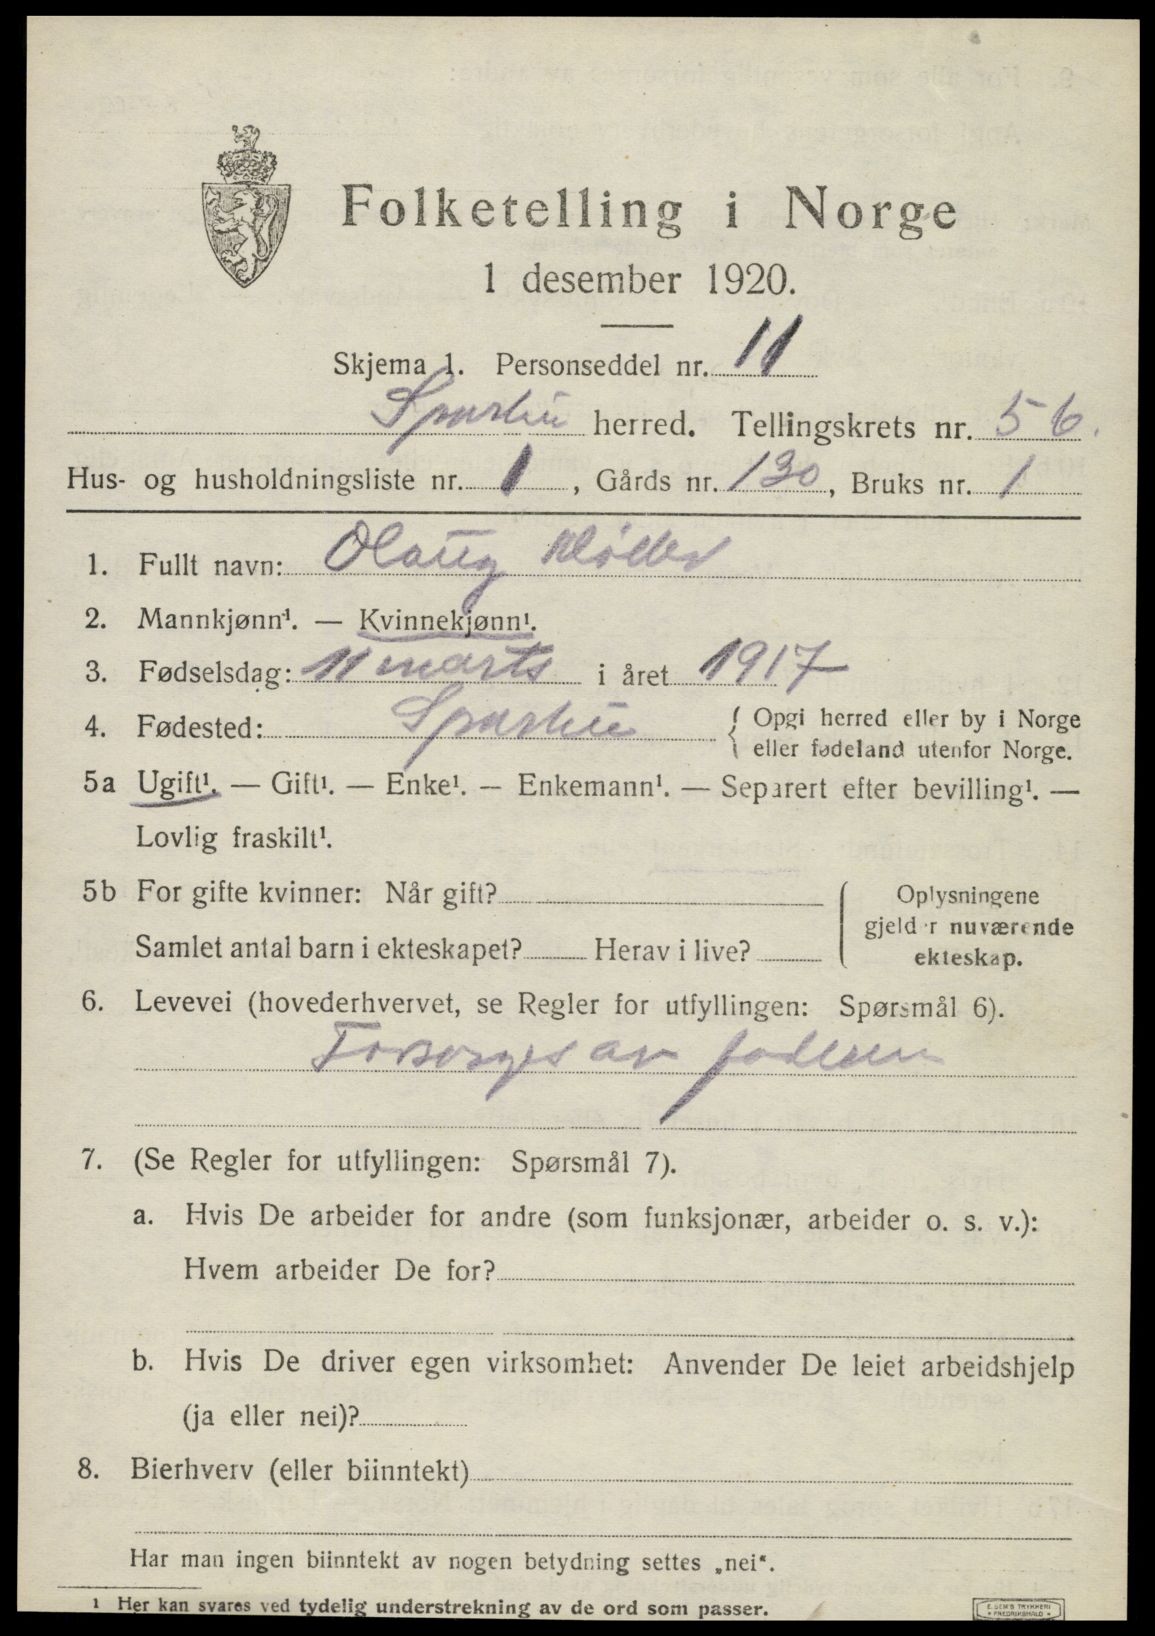 Folketelling i Norge
1 desember 1920.
Skjema 1. Personseddel nr. 11
herred. Tellingskrets nr. 5-6.
Hus- og husholdningsliste nr. 1, Gårds nr. 130, Bruks nr. 1
1. Fullt navn: Olaug
2. Mannkjønn¹. — Kvinnekjønn¹.
3. Fødselsdag: 11 marts i året 1917
4. Fødested: { Opgi herred eller by i Norge
eller fødeland utenfor Norge.
5a Ugift¹. — Gift¹. — Enke¹. — Enkemann¹. — Separert efter bevilling¹. —
Lovlig fraskilt¹.
5b For gifte kvinner: Når gift?
Samlet antal barn i ekteskapet? Herav i live?
Oplysningene
gjelder nuværende
ekteskap.
6. Levevei (hovederhvervet, se Regler for utfyllingen: Spørsmål 6).
Forsørges av faderen
7. (Se Regler for utfyllingen: Spørsmål 7).
a. Hvis De arbeider for andre (som funksjonær, arbeider o. s. v.):
Hvem arbeider De for?
b. Hvis De driver egen virksomhet: Anvender De leiet arbeidshjelp
(ja eller nei)?
8. Bierhverv (eller biinntekt)
Har man ingen biinntekt av nogen betydning settes „nei“.
¹ Her kan svares ved tydelig understrekning av de ord som passer.
E. SEM'S TRYKKERI
FREDRIKSHALD